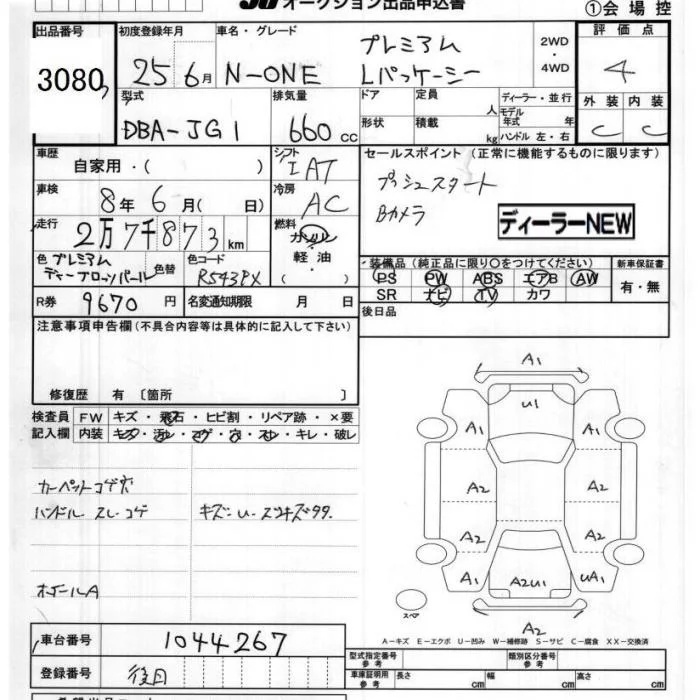 オークション出品申込書 ①会場控
出品番号 初度登録年月 車名・グレード 2WD・4WD 評価点
3080 25 6月 N-ONE プレミアム Lパッケージ 4
型式 排気量 ドア 定員 人 ディーラー・並行 外装 内装
DBA-JG1 660cc 形状 積載 kg モデル年式 年 ハンドル 左・右 C C
車歴 自家用・( ) シフト IAT セールスポイント (正常に機能するものに限ります)
車検 8年 6月( 日) 冷房 AC プッシュスタート
走行 2万7千873km 燃料 ガソリン 軽油 ( ) Bカメラ ディーラーNEW
色 プレミアム 色替 色コード R543PX
装備品 (純正品に限り○をつけてください) 新車保証書
PS PW ABS エアB AW 有・無
SR ナビ TV カワ
R券 9670円 名変通知期限 月 日
後日品
注意事項申告欄(不具合内容等は具体的に記入して下さい)
修復歴 有 〔箇所 〕
検査員 FW キズ・飛石・ヒビ割・リペア跡・×要
記入欄 内装 キズ・汚レ・コゲ・穴・スレ・キレ・破レ
カーペットコゲ穴
ハンドル スレ・コゲ キズ・U・スリキズ99.
A1
U1
A1 A1
A2 A2
A2 A2
A1 A2U1 UA1
スペア
A2
A-キズ E-エクボ U-凹み W-補修跡 S-サビ C-腐食 XX-交換済
車台番号 1044267
型式指定番号 参考 類別区分番号 参考
登録番号 後日
車庫証明用 参考 長さ cm 幅 cm 高さ cm